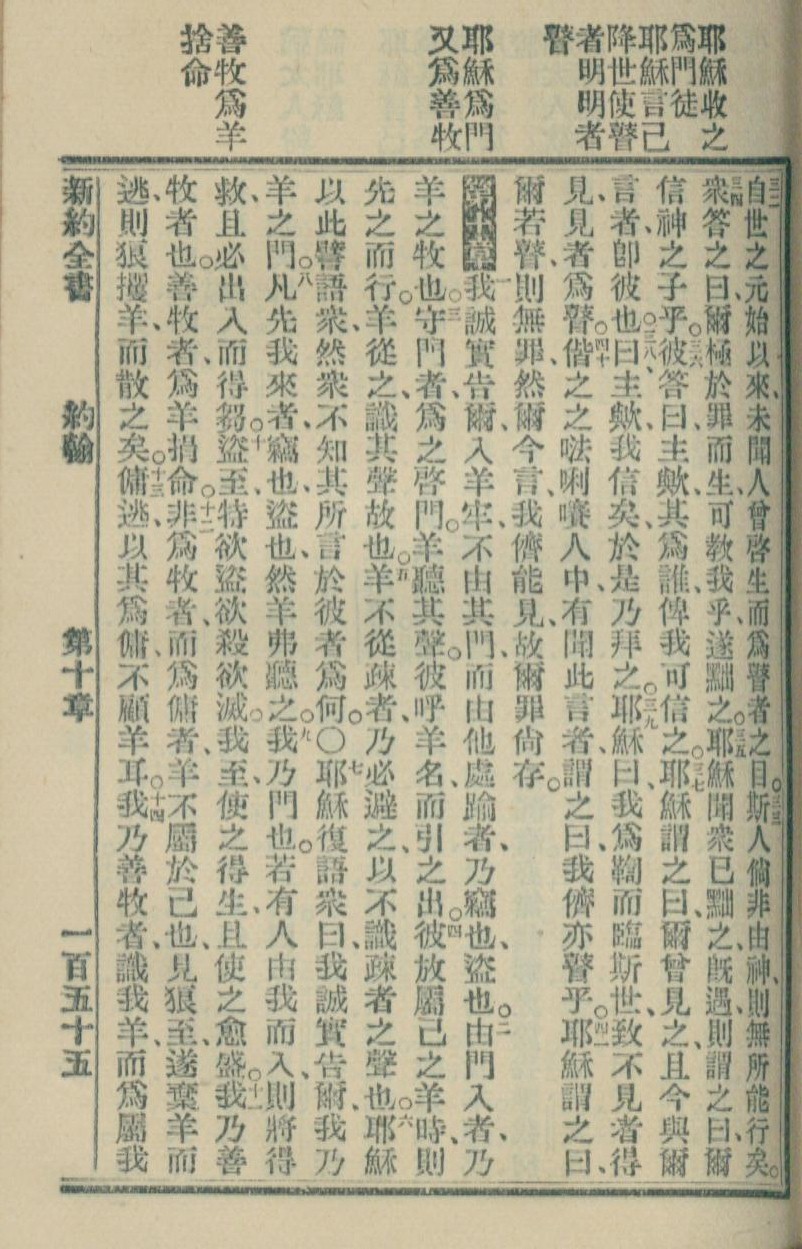 耶穌收之
爲門徒
耶穌言己
降世使瞽
者明明者
瞽
耶穌爲門
又爲善牧
善牧爲羊
捨命
三二自世之元始以來、未聞人曾啓生而爲瞽者之目。三三斯人倘非由神、則無所能行矣。
三四衆答之曰、爾極於罪而生、可教我乎、遂黜之。三五耶穌聞衆已黜之、旣遇、則謂之曰、爾
信神之子乎。三六彼答曰、主歟、其爲誰、俾我可信之。三七耶穌謂之曰、爾曾見之、且今與爾
言者、卽彼也。三八曰、主歟、我信矣、於是乃拜之。三九耶穌曰、我爲鞫而臨斯世、致不見者得
見、見者爲瞽。四十偕之之𠵽唎嚽人中、有聞此言者、謂之曰、我儕亦瞽乎。四一耶穌謂之曰、
爾若瞽、則無罪、然爾今言、我儕能見、故爾罪尙存。
第十章一我誠實告爾、入羊牢、不由其門、而由他處踰者、乃竊也、盜也。二由門入者、乃
羊之牧也。三守門者、爲之啓門。羊聽其聲。彼呼羊名、而引之出。四彼放屬己之羊時、則
先之而行。羊從之、識其聲故也。五羊不從疎者、乃必避之、以不識疎者之聲也。六耶穌
以此譬語衆、然衆不知其所言於彼者爲何。〇七耶穌復語衆曰、我誠實告爾、我乃
羊之門。八凡先我來者、竊也、盜也、然羊弗聽之。九我乃門也。若有人由我而入、則將得
救、且必出入而得芻。十盜至、特欲盜欲殺欲滅。我至、使之得生、且使之愈盛。十一我乃善
牧者也。善牧者、爲羊捐命。十二非爲牧者、而爲傭者、羊不屬於己也、見狼至、遂棄羊而
逃、則狼攫羊、而散之矣。十三傭逃、以其爲傭、不顧羊耳。十四我乃善牧者、識我羊、而爲屬我
新約全書 約翰 第十章 一百五十五